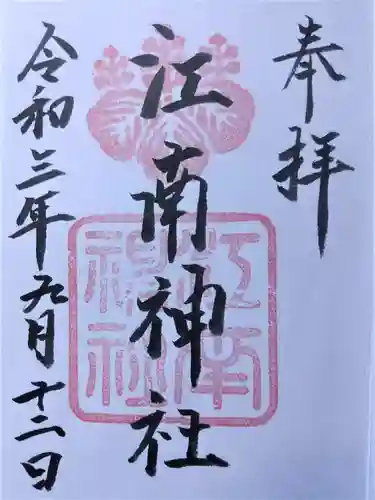 奉拝
江南神社
江南
神社
令和三年九月十二日